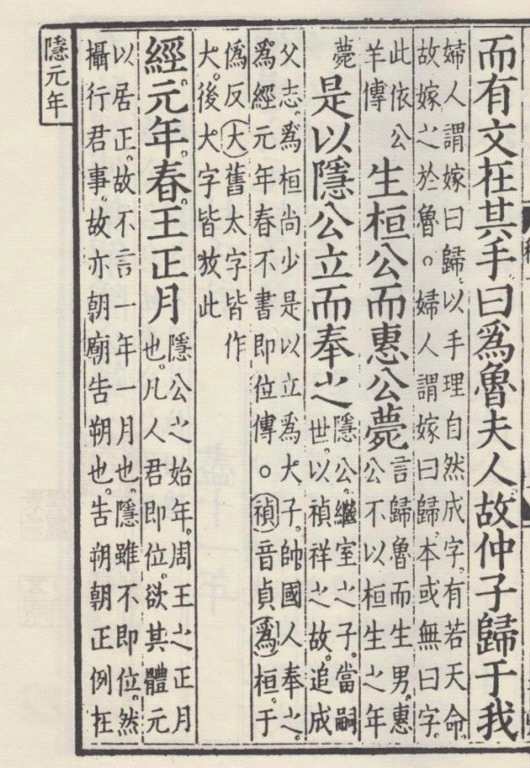 而有文在其手曰爲魯夫人故仲子歸于我
婦人謂嫁曰歸以手理自然成字有若天命
故嫁之於魯。婦人謂嫁曰歸本或無曰字
此依公
羊傳
生桓公而惠公薨
言歸魯而生男惠
公不以桓生之年
薨
是以隱公立而奉之
隱公繼室之子當嗣
世以禎祥之故追成
父志爲桓尚少是以立爲大子帥國人奉之
爲經元年春不書即位傳。禎音貞爲桓于
爲反大舊太字皆作
大後大字皆放此
經元年春王正月
隱公之始年周王之正月
也凡人君即位欲其體元
以居正故不言一年一月也隱雖不即位然
攝行君事故亦朝廟告朔也告朔朝正例在
隱元年